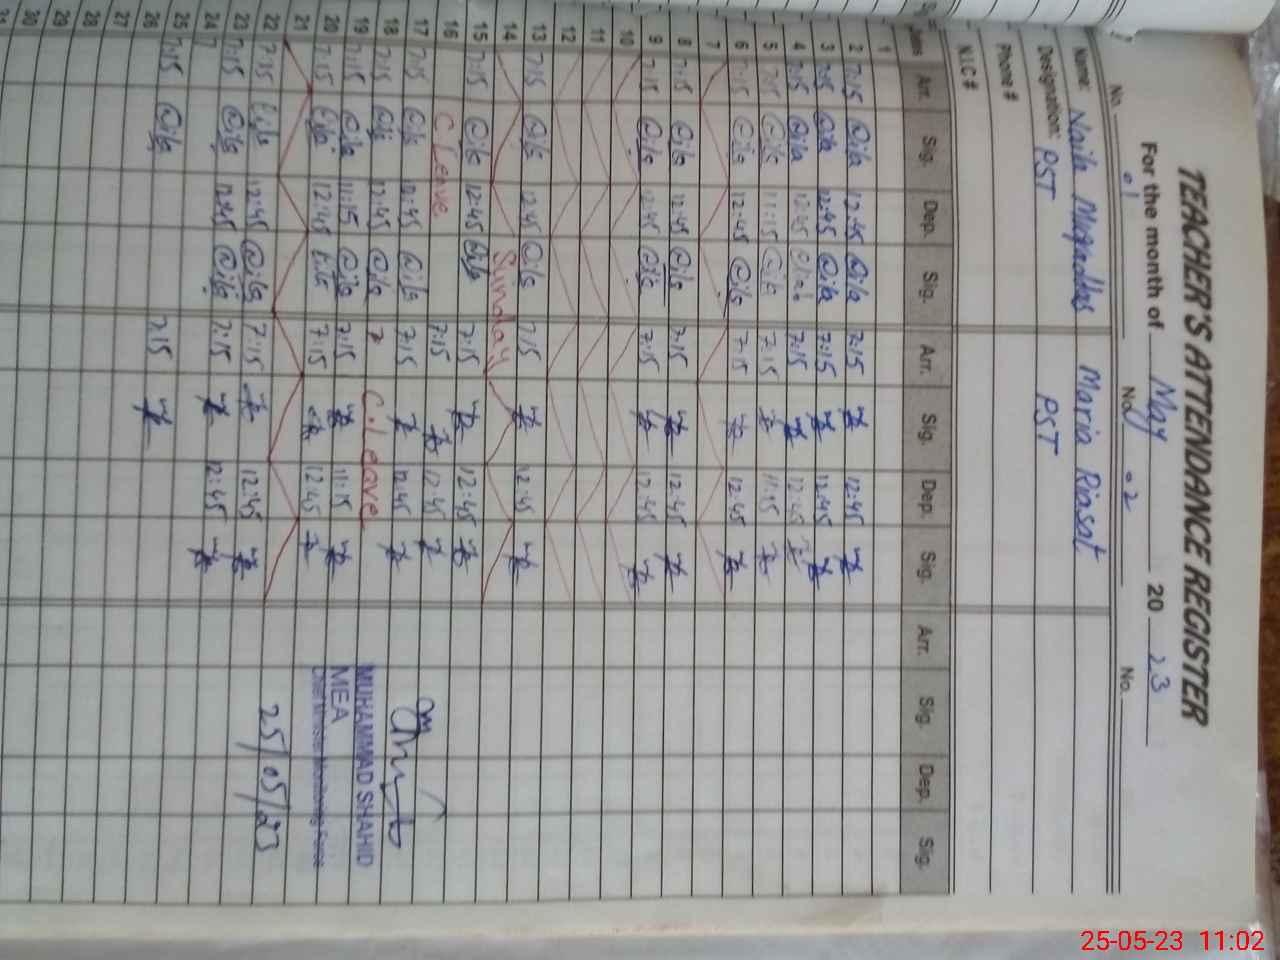 TEACHER'S ATTENDANCE REGISTER
For the month of May 20 23
No. 01 No. 02 No.
Name: Naila Muqaddas Maria Riasat
Designation: PST PST
Phone #
N.I.C #
Dates Arr. Sig. Dep. Sig. Arr. Sig. Dep. Sig. Arr. Sig. Dep. Sig.
1
2 7:15 12:45 7:15 12:45
3 7:15 12:45 7:15 12:45
4 7:15 12:45 7:15 12:45
5 7:15 11:15 7:15 11:15
6 7:15 12:45 7:15 12:45
7
8 7:15 12:45 7:15 12:45
9 7:15 12:45 7:15 12:45
10
11
12
13 7:15 12:45 7:15 12:45
14 Sunday
15 7:15 12:45 7:15 12:45
16 C Leave 7:15 12:45
17 7:15 12:45 7:15 12:45
18 7:15 12:45 7 C.Leave
19 7:15 11:15 7:15 11:15
20 7:15 12:45 7:15 12:45
21
22 7:15 12:45 7:15 12:45
23 7:15 12:45 7:15 12:45
24 7
25 7:15 7:15
26
27
28
28
29
30
31
MUHAMMAD SHAHID
MEA
Chief Minister Monitoring Force
25/05/23
25-05-23 11:02